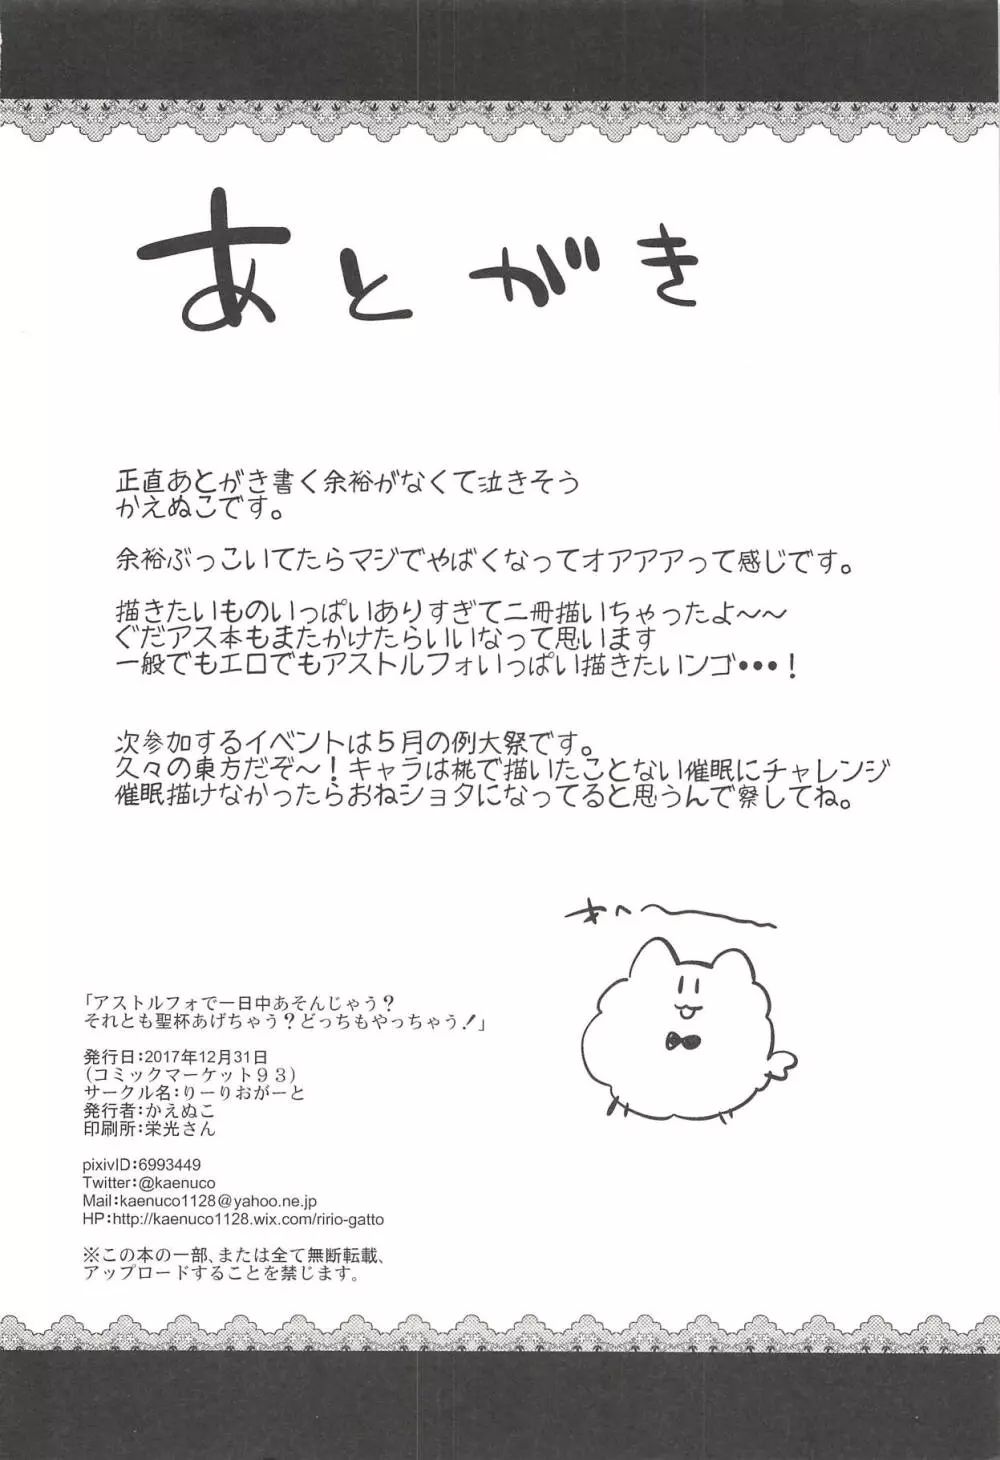 あとがき
正直あとがき書く余裕がなくて泣きそう
かえぬこです。
余裕ぶっこいてたらマジでやばくなってオアアアって感じです。
描きたいものいっぱいありすぎて二冊描いちゃったよ〜〜
ぐだアス本もまたかけたらいいなって思います
一般でもエロでもアストルフォいっぱい描きたいンゴ・・・！
次参加するイベントは５月の例大祭です。
久々の東方だぞ〜！キャラは椛で描いたことない催眠にチャレンジ
催眠描けなかったらおねショタになってると思うんで察してね。
「アストルフォで一日中あそんじゃう？
それとも聖杯あげちゃう？どっちもやっちゃう！」
発行日：2017年12月31日
（コミックマーケット９３）
サークル名：りーりおがーと
発行者：かえぬこ
印刷所：栄光さん
pixivID：6993449
Twitter：@kaenuco
Mail：kaenuco1128@yahoo.ne.jp
HP：http://kaenuco1128.wix.com/ririo-gatto
※この本の一部、または全て無断転載、
アップロードすることを禁じます。